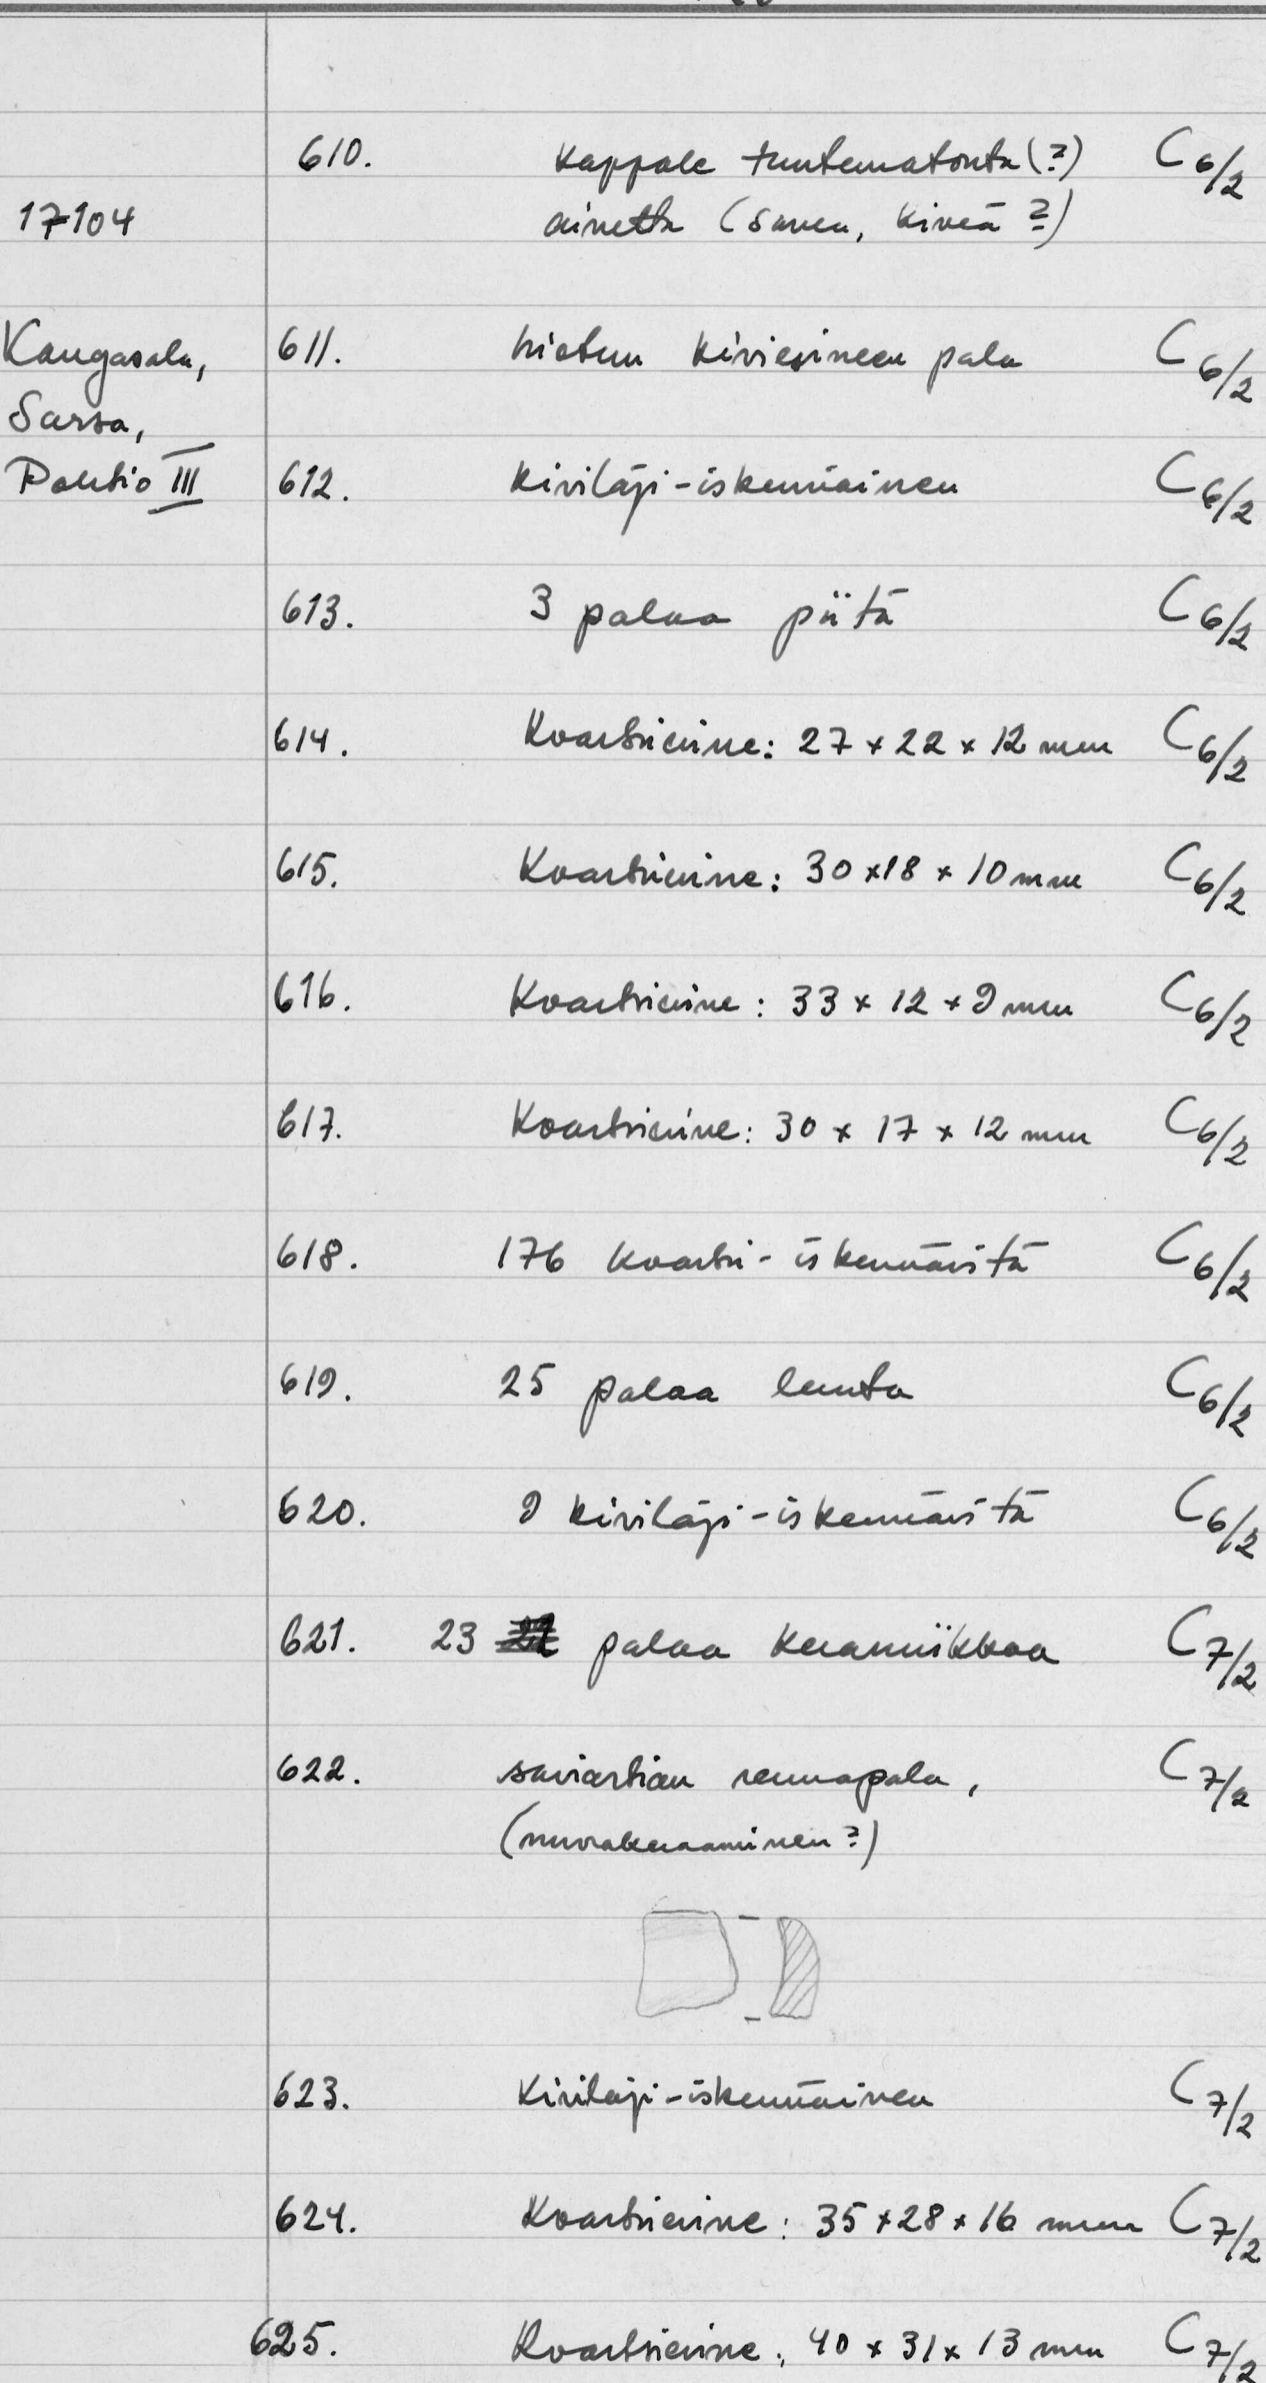 610. kappale tuntematonta (?) C 6/2
17104
ainetta (savea, kiveä ?)
Kangasala,
611. hiotun kiviesineen pala C 6/2
Sarsa,
Pohtio III
612. kivilaji-iskennäinen C 6/2
613. 3 palaa piitä C 6/2
614. Kvartsiesine: 27 x 22 x 12 mm C 6/2
615. Kvartsiesine: 30 x 18 x 10 mm C 6/2
616. Kvartsiesine: 33 x 12 x 9 mm C 6/2
617. Kvartsiesine: 30 x 17 x 12 mm C 6/2
618. 176 kvartsi-iskennäistä C 6/2
619. 25 palaa luuta C 6/2
620. 9 kivilaji-iskennäistä C 6/2
621. 23 palaa keramiikkaa C 7/2
622. saviastian reunapala, C 7/2
(nuorakeraaminen?)
623. Kivilaji-iskennäinen C 7/2
624. Kvartsiesine: 35 x 28 x 16 mm C 7/2
625. Kvartsiesine: 40 x 31 x 13 mm C 7/2